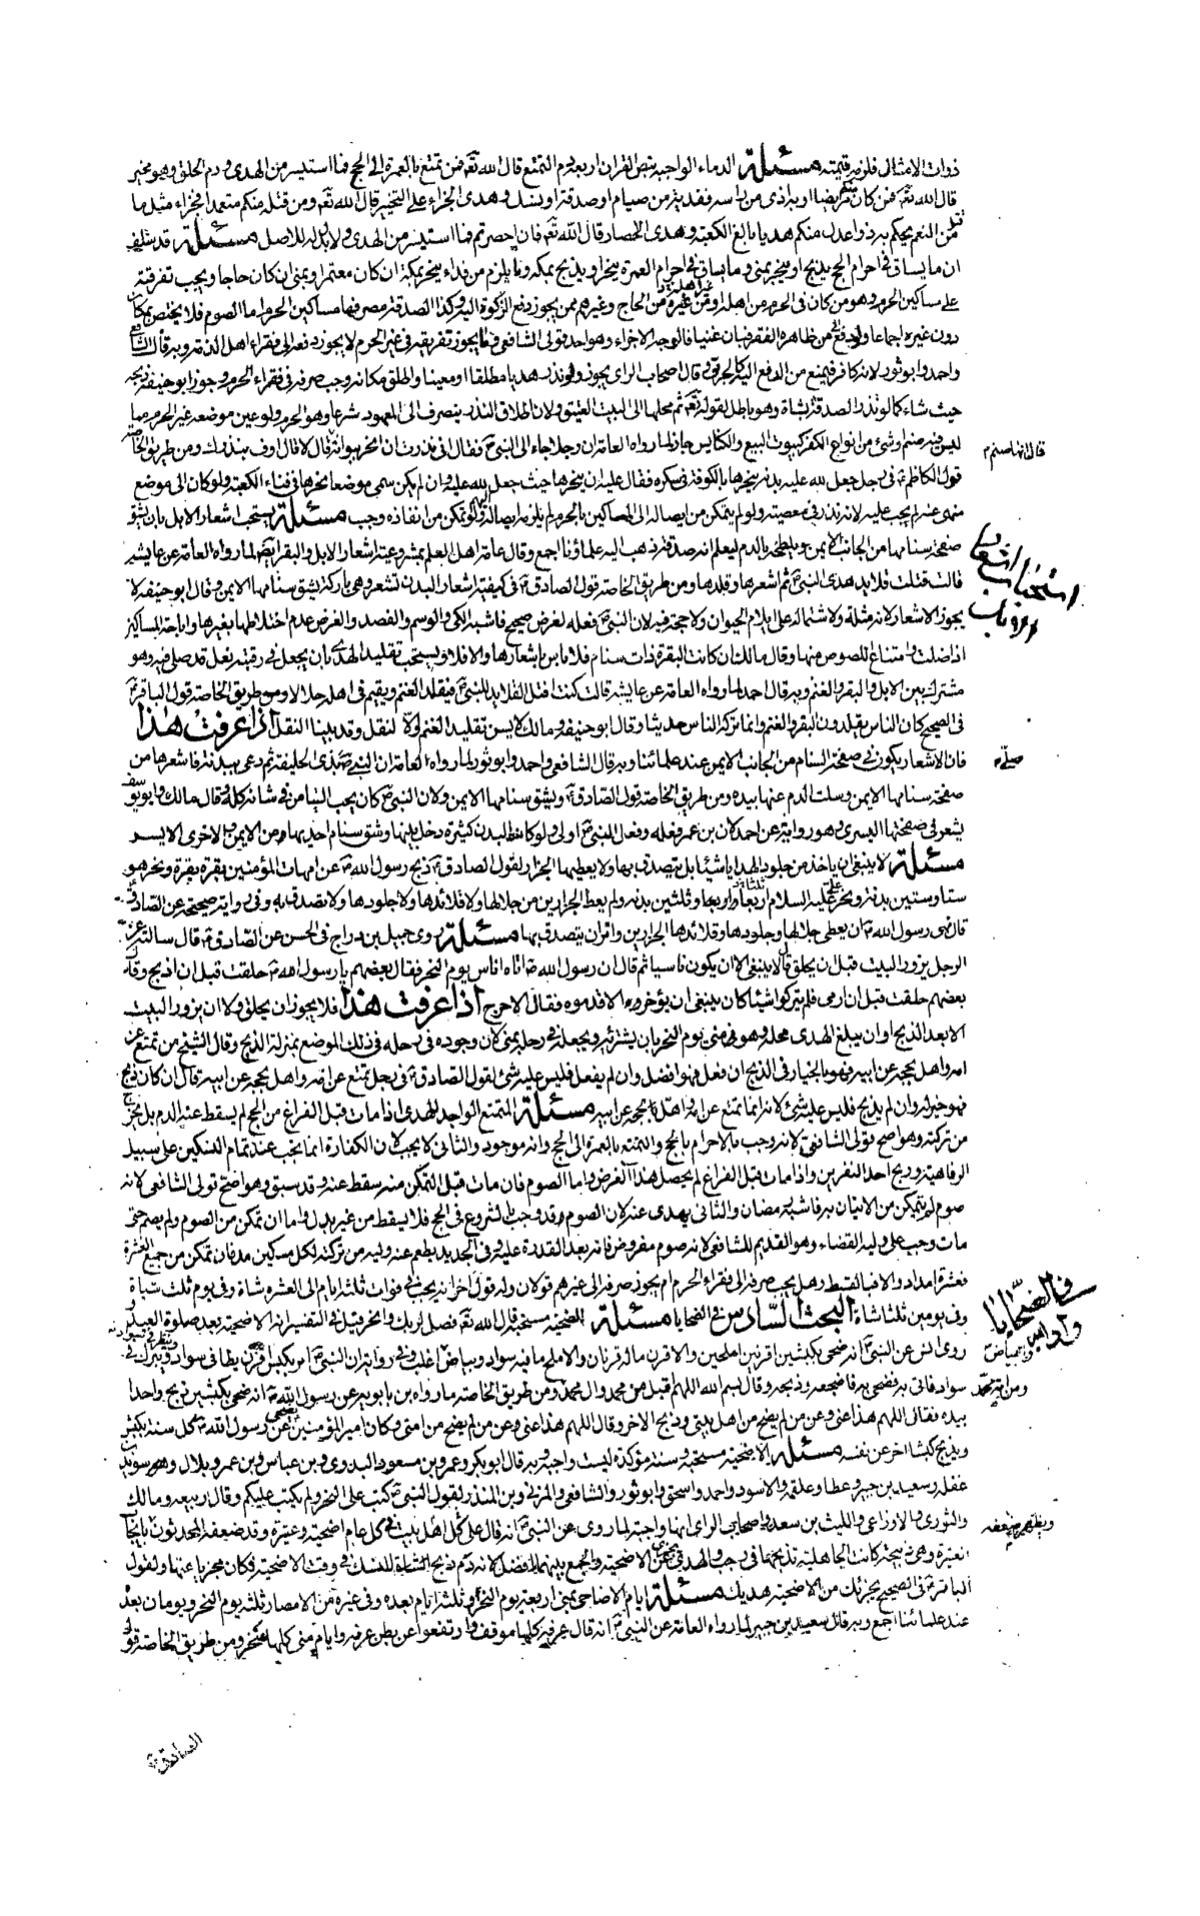 ذوات الامثال فلزمه قيمته مسئلة الدماء الواجبة بنص القران اربعة دم التمتع قال الله تع فمن تمتع بالعمرة الى الحج فما استيسر من الهدى ودم الحلق وهو مخير
قال الله تع فمن كان منكم مريضا او به اذى من راسه ففدية من صيام او صدقة او نسك وهدى الجزاء على التخيير قال الله تع ومن قتله منكم متعمدا فجزاء مثل ما
قتل من النعم يحكم به ذوا عدل منكم هديا بالغ الكعبة وهدى الحصار قال الله تع فان احصرتم فما استيسر من الهدى ولا بدل له للاصل مسئلة قد سلف
ان ما يساق في احرام الحج يذبح او ينحر بمنى وما يساق في احرام العمرة ينحر او يذبح بمكة وما يلزم من فداء ينحر بمكة ان كان معتمرا وبمنى ان كان حاجا ويجب تفرقته
على مساكين الحرم وهو من كان في الحرم من اهله ومن غير اهله من الحاج وغيرهم ممن يجوز دفع الزكوة اليه وكذا الصدقة مصرفها مساكين الحرم اما الصوم فلا يختص بمكان
دون غيره اجماعا ولو دفع الى من ظاهره الفقر فبان غنيا فالوجه الاجزاء وهو احد قولى الشافعي وما يجوز تفريقه في غير الحرم لا يجوز دفعه الى فقراء اهل الذمة وبه قال الشافعي
واحمد وابو ثور لانه كافر فيمنع من الدفع اليه كالحربي وقال اصحاب الراى يجوز ولو نذر هديا مطلقا او معينا واطلق مكانه وجب صرفه في فقراء الحرم وجوز ابو حنيفة ذبحه
حيث شاء كما لو نذر الصدقة بشاة وهو باطل لقوله تع ثم محلها الى البيت العتيق ولان اطلاق النذر ينصرف الى المعهود شرعا وهو الحرم ولو عين موضعه غير الحرم مما
ليس فيه صنم او شئ من انواع الكفر كبيوت البيع والكنايس جاز لما رواه العامة ان رجلا جاء الى النبي ص فقال انى نذرت ان انحر ببوانة قال لا قال اوف بنذرك ومن طريق الخاصة
قال ابها صنم
قول الكاظم ع في رجل جعل لله عليه بدنة ينحرها بالكوفة في شكره فقال عليه ان ينحرها حيث جعل لله عليه وان لم يكن سمى موضعا ينحرها في فناء الكعبة ولو كان الى موضع
منهى عنه لم يجب عليه لانه نذر في معصية ولو لم يتمكن من ايصاله الى المساكين بالحرم لم يلزمه ايصاله اليهم ولو تمكن من انفاذه وجب مسئلة يستحب اشعار الابل بان يشق
صفحة سنامها من الجانب الايمن ويلطخه بالدم ليعلم انه صدقة ذهب اليه علماؤنا اجمع وقال عامة اهل العلم بمشروعية اشعار الابل والبقر ايضا لما رواه العامة عن عايشة
استحباب اشعار
قالت فتلت قلايد هدى النبي ص ثم اشعرها وقلدها ومن طريق الخاصة قول الصادق ع في كيفية اشعار البدن تشعر وهي باركة يشق سنامها الايمن وقال ابو حنيفة لا
يجوز الاشعار لانه مثلة ولاشتماله على ايلام الحيوان ولا حجة فيه لان النبي ص فعله لغرض صحيح فاشبه الكي والوسم والفصد والغرض عدم اختلاطها بغيرها واباحة المساكين
اذا ضلت وامتناع اللصوص منها وقال مالك ان كانت البقرة ذات سنام فلا باس باشعارها والا فلا ويستحب تقليد الهدى بان يجعل في رقبته نعل قد صلى فيه وهو
مشترك بين الابل والبقر والغنم وبه قال احمد لما رواه العامة عن عايشة قالت كنت افتل القلايد للنبي ص فيقلد الغنم ويقيم في اهله حلالا ومن طريق الخاصة قول الباقر ع
في الصحيح كان الناس يقلدون البقر والغنم وانما تركه الناس حديثا وقال ابو حنيفة ومالك لا يسن تقليد الغنم والا لنقل وقد بينا النقل اذا عرفت هذا
فان الاشعار يكون في صفحة السنام من الجانب الايمن عند علمائنا وبه قال الشافعي واحمد وابو ثور لما رواه العامة ان النبي ص بذى الحليفة ثم دعى ببدنة فاشعرها من
صلى
صفحة سنامها الايمن وسلت الدم عنها بيده ومن طريق الخاصة قول الصادق ع ويشق سنامها الايمن ولان النبي ص كان يحب التيامن في شانه كله وقال مالك وابو يوسف
يشعر في صفحتها اليسرى وهو رواية عن احمد لان بن عمر فعله وفعل النبي ص اولى ولو كان معه البدن كثيرة دخل بينها وشق سنام احديهما من الايمن والاخرى الايسر
مسئلة لا ينبغي ان ياخذ من جلود الهدايا شيئا بل يتصدق بها ولا يعطيها الجزار لقول الصادق ع ذبح رسول الله ص عن امهات المؤمنين بقرة بقرة ونحر هو
ستا وستين بدنة ونحر علي عليه السلام اربعا وثلثين بدنة ولم يعط الجزارين من جلالها ولا قلائدها ولا جلودها ولا تصدق به وفي رواية صحيحة عن الصادق ع
قال نهى رسول الله ص ان يعطى جلالها وجلودها وقلائدها الجزارين وامر ان يتصدق بها مسئلة روى جميل بن دراج في الحسن عن الصادق ع قال سالته عن
الرجل يزور البيت قبل ان يحلق قال لا ينبغي الا ان يكون ناسيا ثم قال ان رسول الله ص اتاه اناس يوم النحر فقال بعضهم يا رسول الله ص حلقت قبل ان اذبح وقال
بعضهم حلقت قبل ان ارمى فلم يتركوا شيئا كان ينبغي ان يؤخروه الا قدموه فقال لا حرج اذا عرفت هذا فلا يجوز ان يحلق ولا ان يزور البيت
الا بعد الذبح او ان يبلغ الهدى محله وهو في منى يوم النحر بان يشتريه ويجعله في رحله بمنى لان وجوده في رحله في ذلك الموضع بمنزلة الذبح وقال الشيخ من تمتع عن
امه واهل بحجه عن ابيه فهو بالخيار في الذبح ان فعل فهو افضل وان لم يفعل فليس عليه شئ لقول الصادق ع في رجل تمتع عن امه واهل بحجه عن ابيه قال ان كان ذبح
فهو خير له وان لم يذبح فليس عليه شئ لانه انما تمتع عن امه واهل بحجه عن ابيه مسئلة المتمتع الواجد للهدى اذا مات قبل الفراغ من الحج لم يسقط عنه الدم بل يخرج
من تركته وهو اصح قولى الشافعي لانه وجب بالاحرام بالحج والتمتع بالعمرة الى الحج وانه موجود والثاني لا يجب لان الكفارة انما تجب عند تمام النسكين على سبيل
الرفاهية وربح احد السفرين واذا مات قبل الفراغ لم يحصل هذا الغرض واما الصوم فان مات قبل التمكن منه سقط عنه وقد سبق وهو اصح قولى الشافعي لانه
صوم لم يتمكن من الاتيان به فاشبه رمضان والثاني يهدى عنه لان الصوم قد وجب بالشروع في الحج فلا يسقط من غير بدل واما ان تمكن من الصوم ولم يصم حتى
مات وجب على وليه القضاء وهو القديم للشافعي لانه صوم مفروض فاته بعد القدرة عليه وفي الجديد يطعم عنه وليه من تركته لكل مسكين مد فان تمكن من جميع العشرة
فعشرة امداد والا فبالقسط وهل يجب صرفه الى فقراء الحرم ام يجوز صرفه الى غيرهم قولان وله قول اخر انه يجب في فوات ثلثة ايام الى العشرة شاة وفي يوم ثلث شاة
وفي يومين ثلثا شاة البحث السادس في الضحايا مسئلة الضحية مستحبة قال الله تع فصل لربك وانحر قيل في التفسير انه الاضحية بعد صلوة العيد
في الضحايا
روى انس عن النبي ص انه ضحى بكبشين اقرنين املحين والاقرن ماله قرنان والاملح ما فيه سواد وبياض اغلب وفي رواية ان النبي ص امر بكبش اقرن يطأ في سواد ويبرك في
سواد فاتى به فضحى به فاضجعه وذبحه وقال بسم الله اللهم اقبل من محمد وال محمد ومن طريق الخاصة ما رواه بن بابويه عن رسول الله ص انه ضحى بكبشين ذبح واحدا
ومن امة محمد
بيده فقال اللهم هذا عنى وعن من لم يضح من اهل بيتى وذبح الاخر وقال اللهم هذا عنى وعن من لم يضح من امتى وكان امير المؤمنين ع يضحى عن رسول الله ص كل سنة بكبش
ويذبح كبشا اخر عن نفسه مسئلة الاضحية مستحبة وسنة مؤكدة ليست واجبة وبه قال ابو بكر وعمر وبن مسعود البدرى وبن عباس وبن عمر وبلال وسويد بن
غفلة وسعيد بن جبير وعطا وعلقمة والاسود واحمد واسحق وابو ثور والشافعي والمزنى وبن المنذر لقول النبي ص كتب على النحر ولم يكتب عليكم وقال ربيعة ومالك
والثورى والاوزاعى والليث بن سعد واصحاب الراى انها واجبة لما روى عن النبي ص انه قال على كل اهل بيت في كل عام اضحية وعتيرة وقد ضعفه المحدثون بايجاب
العتيرة وهي ذبيحة كانت الجاهلية تذبحها في رجب والهدى يجزى عن الاضحية والجمع بينهما افضل لانه دم ذبح الشاة للنسك في وقت الاضحية فكان مجزيا عنها ولقول
الباقر ع في الصحيح يجزئك من الاضحية هديك مسئلة ايام الاضاحى بمنى اربعة يوم النحر وثلثة ايام بعده وفي غيره من الامصار ثلثة يوم النحر ويومان بعده
عند علمائنا اجمع وبه قال سعيد بن جبير لما رواه العامة عن النبي ص انه قال عرفة كلها موقف وارتفعوا عن بطن عرفة وايام منى كلها منحر ومن طريق الخاصة قول
الصادق ع